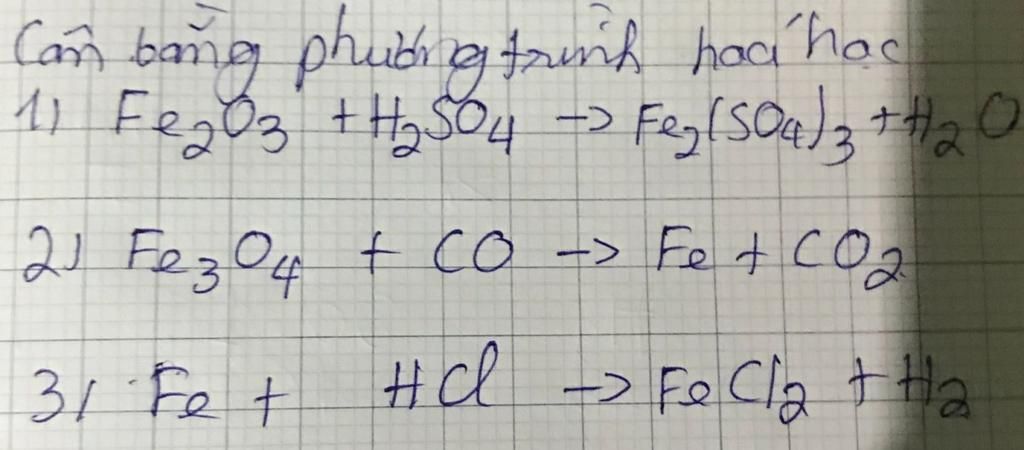 Cân bằng phương trình hoá học
1) Fe₂O₃ + H₂SO₄ → Fe₂(SO₄)₃ + H₂O
2) Fe₃O₄ + CO → Fe + CO₂
3) Fe + HCl → FeCl₂ + H₂